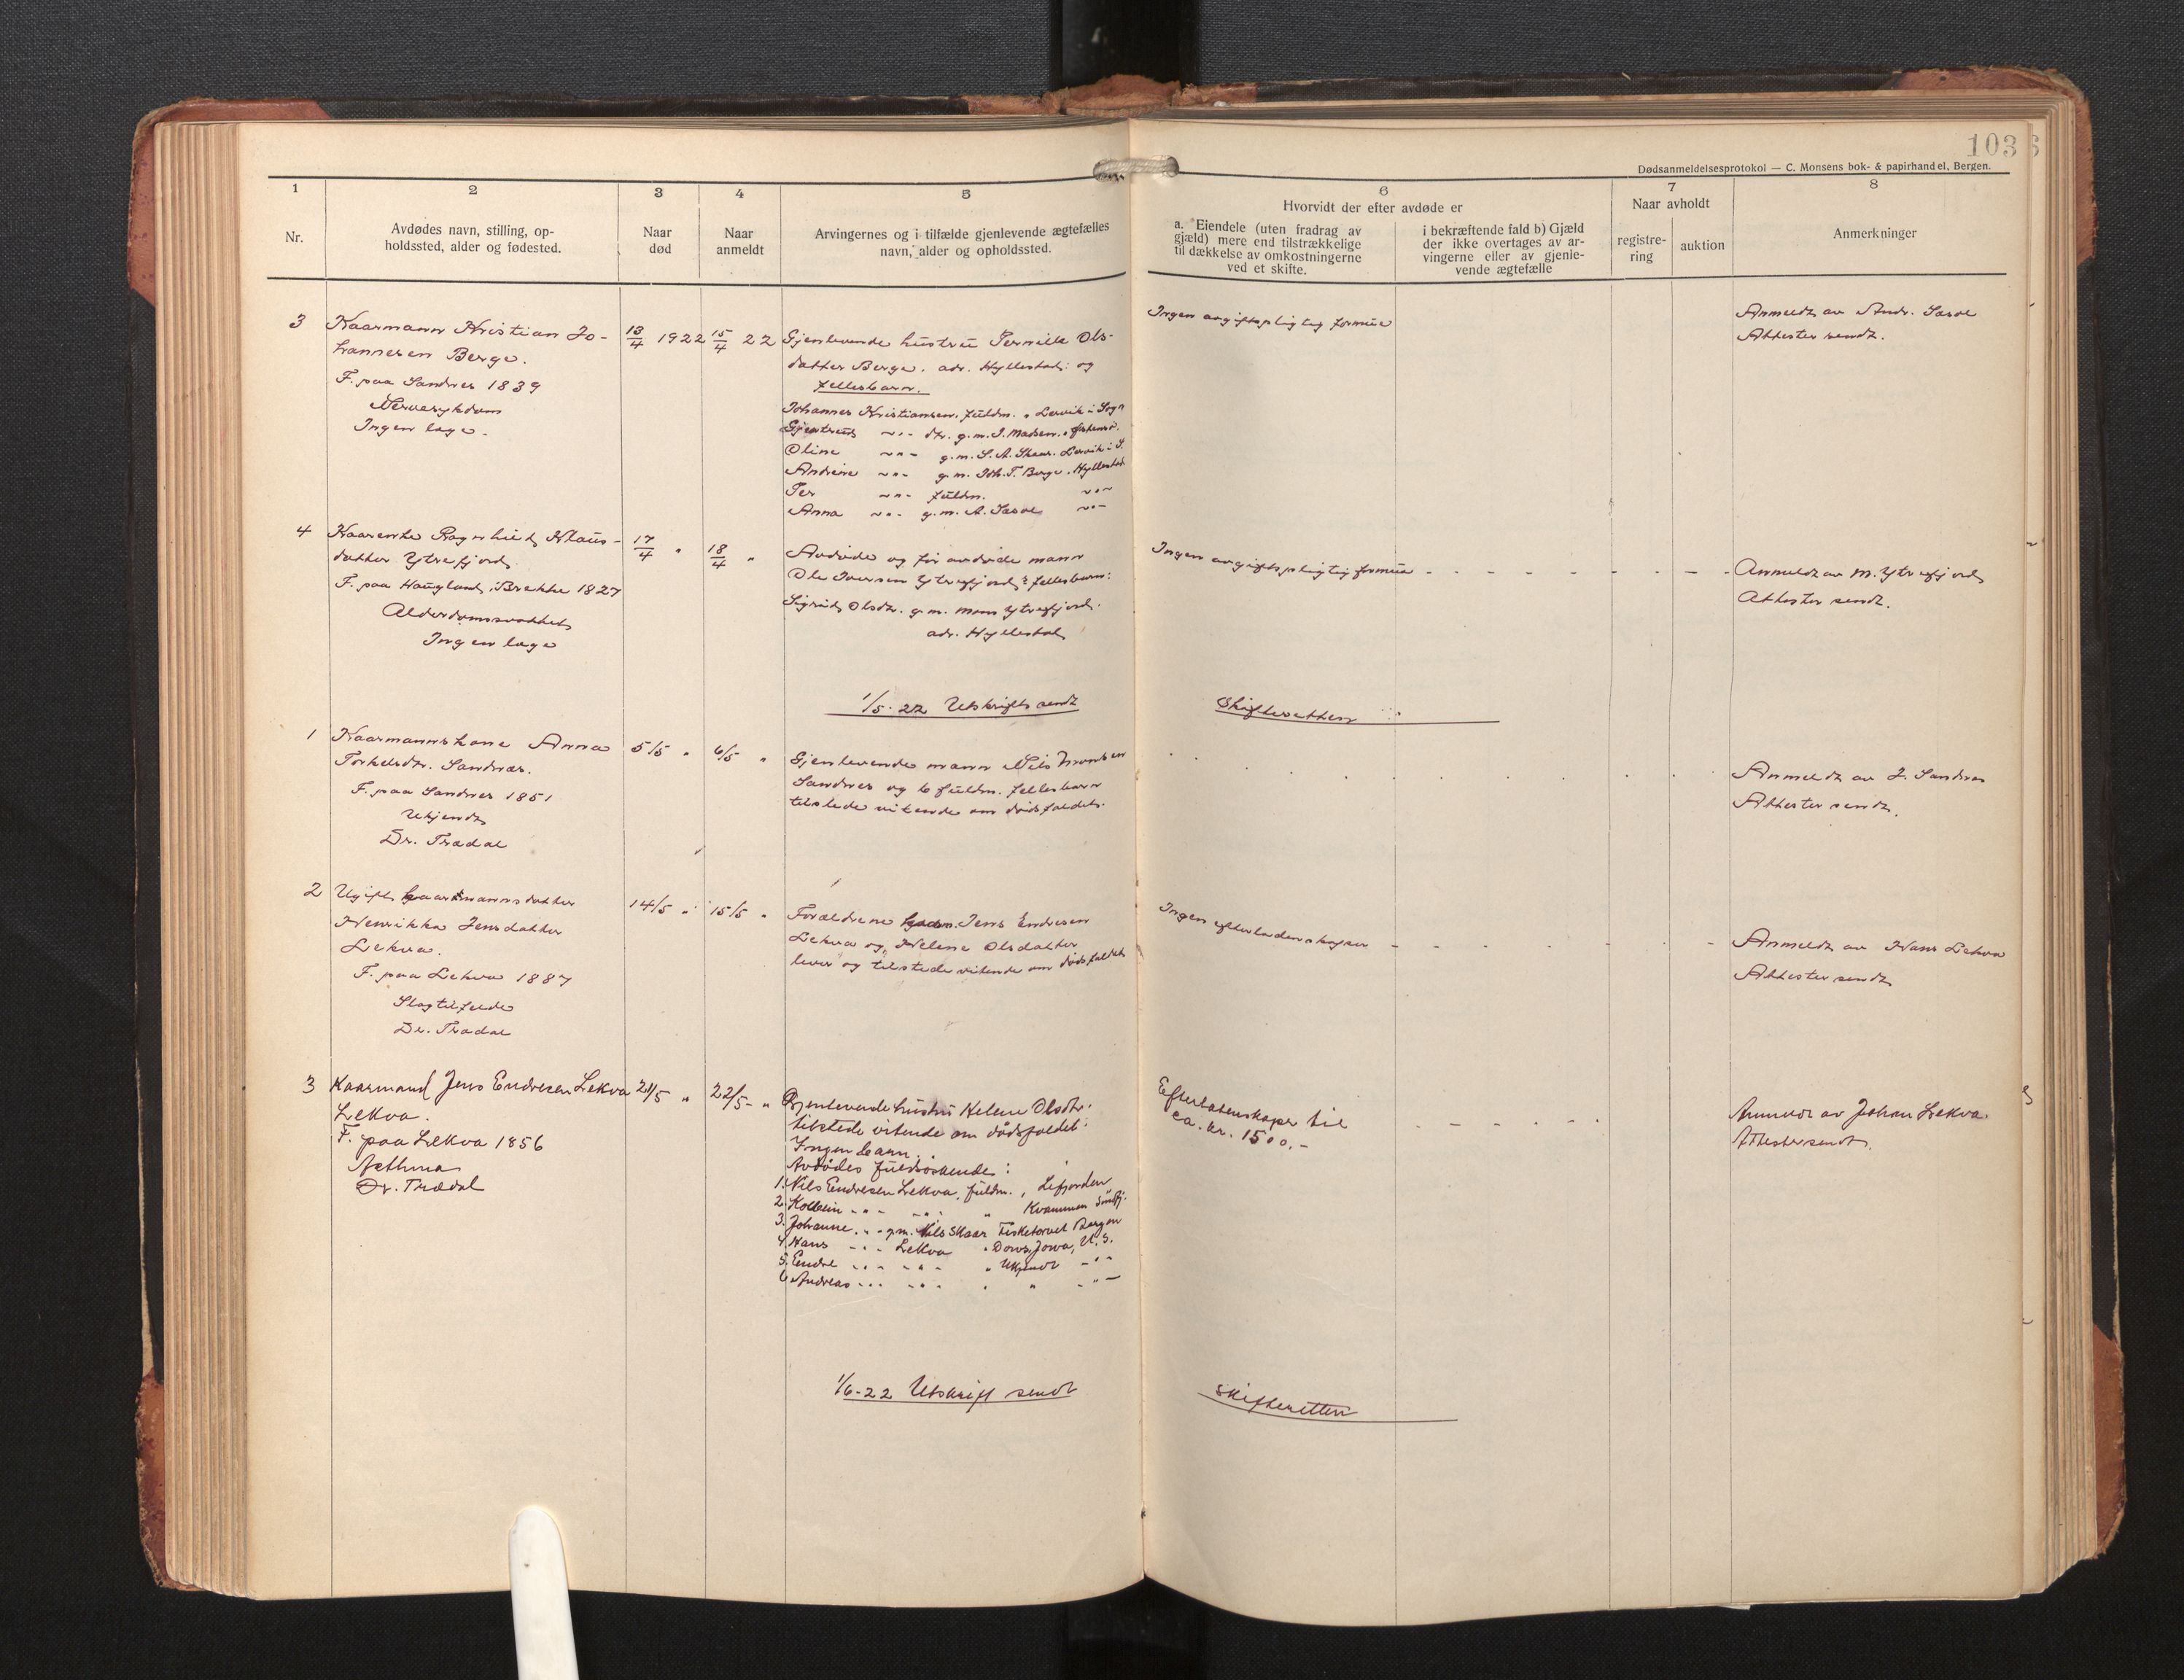 103
Dødsanmeldelsesprotokol — C. Monsens bok- & papirhandel, Bergen.
1 2 3 4 5 6 7 8
Nr.
Avdødes navn, stilling, op-
holdssted, alder og fødested.
Naar
død
Naar
anmeldt
Arvingernes og i tilfælde gjenlevende ægtefælles
navn, alder og opholdssted.
Hvorvidt der efter avdøde er
a. Eiendele (uten fradrag av
gjæld) mere end tilstrækkelige
til dækkelse av omkostningerne
ved et skifte.
i bekræftende fald b) Gjæld
der ikke overtages av ar-
vingerne eller av gjenle-
vende ægtefælle
Naar avholdt
registre-
ring
auktion
Anmerkninger
3 Kaarmann Kristian Jo-
hannesen Berge.
F. paa Sandnes 1839
Nervesykdom
Ingen læge.
13/4 1922
15/4 22
Gjenlevende hustru Pernille Ols-
datter Berge. adr. Hyllestad: og
fellesbarn.
Johannes Kristiansen. fuldm. " Lervik i Sogn
Gjertrud -"- dtr. g.m. J. Madsen.
Oline -"- g.m. S. A. Skaar. Lervik i S.
Andrine -"- g.m. Joh. T. Berge. Hyllestad
Per -"- fuldm. -"-
Anna -"- g.m. A. Sæsol -"-
Ingen avgiftspligtig formue
Anmeldt av Andr. Sæsol
Attester sendt.
4 Kaarenke Ragnhild Klaus-
datter Ytrefjord.
F. paa Haugland, Brekke 1827
Alderdomssvakhet
Ingen læge
17/4 "
18/4 "
Avdøde og før avdøde mann
Ole Iversen Ytrefjord's fellesbarn:
Sigrid Olsdtr. g.m. Mons Ytrefjord.
adr. Hyllestad
Ingen avgiftspligtig formue - - - - - - - -
Anmeldt av M. Ytrefjord
Attester sendt.
1/5-22 Utskrift sendt
Skifteretten
1 Kaarmannskone Anna
Torkelsdtr. Sandnes.
F. paa Sandnes 1851
Ukjendt
Dr. Trædal
5/5 "
6/5 "
Gjenlevende mann Nils Monsen
Sandnes og 6 fuldm. fellesbarn
tilstede vitende om dødsfaldet.
Anmeldt av J. Sandnes
Attester sendt.
2 Ugift kaarmannsdatter
Henrikka Jensdatter
Lekva.
F. paa Lekva 1887
Slagtilfelde
Dr. Trædal
14/5 "
15/5 "
Forældrene Jens Endresen
Lekva og Helene Olsdatter
lever og tilstede vitende om dødsfaldet
Ingen efterladenskaper - - - - - -
Anmeldt av Hans Lekva
Attester sendt
3 Kaarmand Jens Endresen Lekva
Lekva.
F. paa Lekva 1856
Asthma
Dr. Trædal
21/5 "
22/5- "
Gjenlevende hustru Helene Olsdtr.
tilstede vitende om dødsfaldet.
Ingen barn.
Avdødes fuldsøskende:
1. Nils Endresen Lekva, fuldm., Lifjorden
2. Kolbein -"- -"- " Kvammen Søndfj.
3. Johanne -"- gm. Nils Skaar Fisketorvet Bergen
4. Hans -"- Lekva " Dows, Jowa, U.S.
5. Endre -"- -"- " Ukjendt -"-
6. Andreas -"- -"- " " -"-
Efterlatenskaper til
ca. kr. 1500.-
Anmeldt av Johan Lekva.
Attester sendt.
1/6-22 Utskrift sendt
Skifteretten